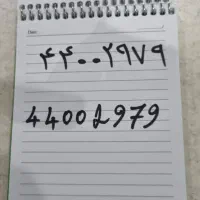 Date:
۴۴۰۰۲۹۷۹
44002979